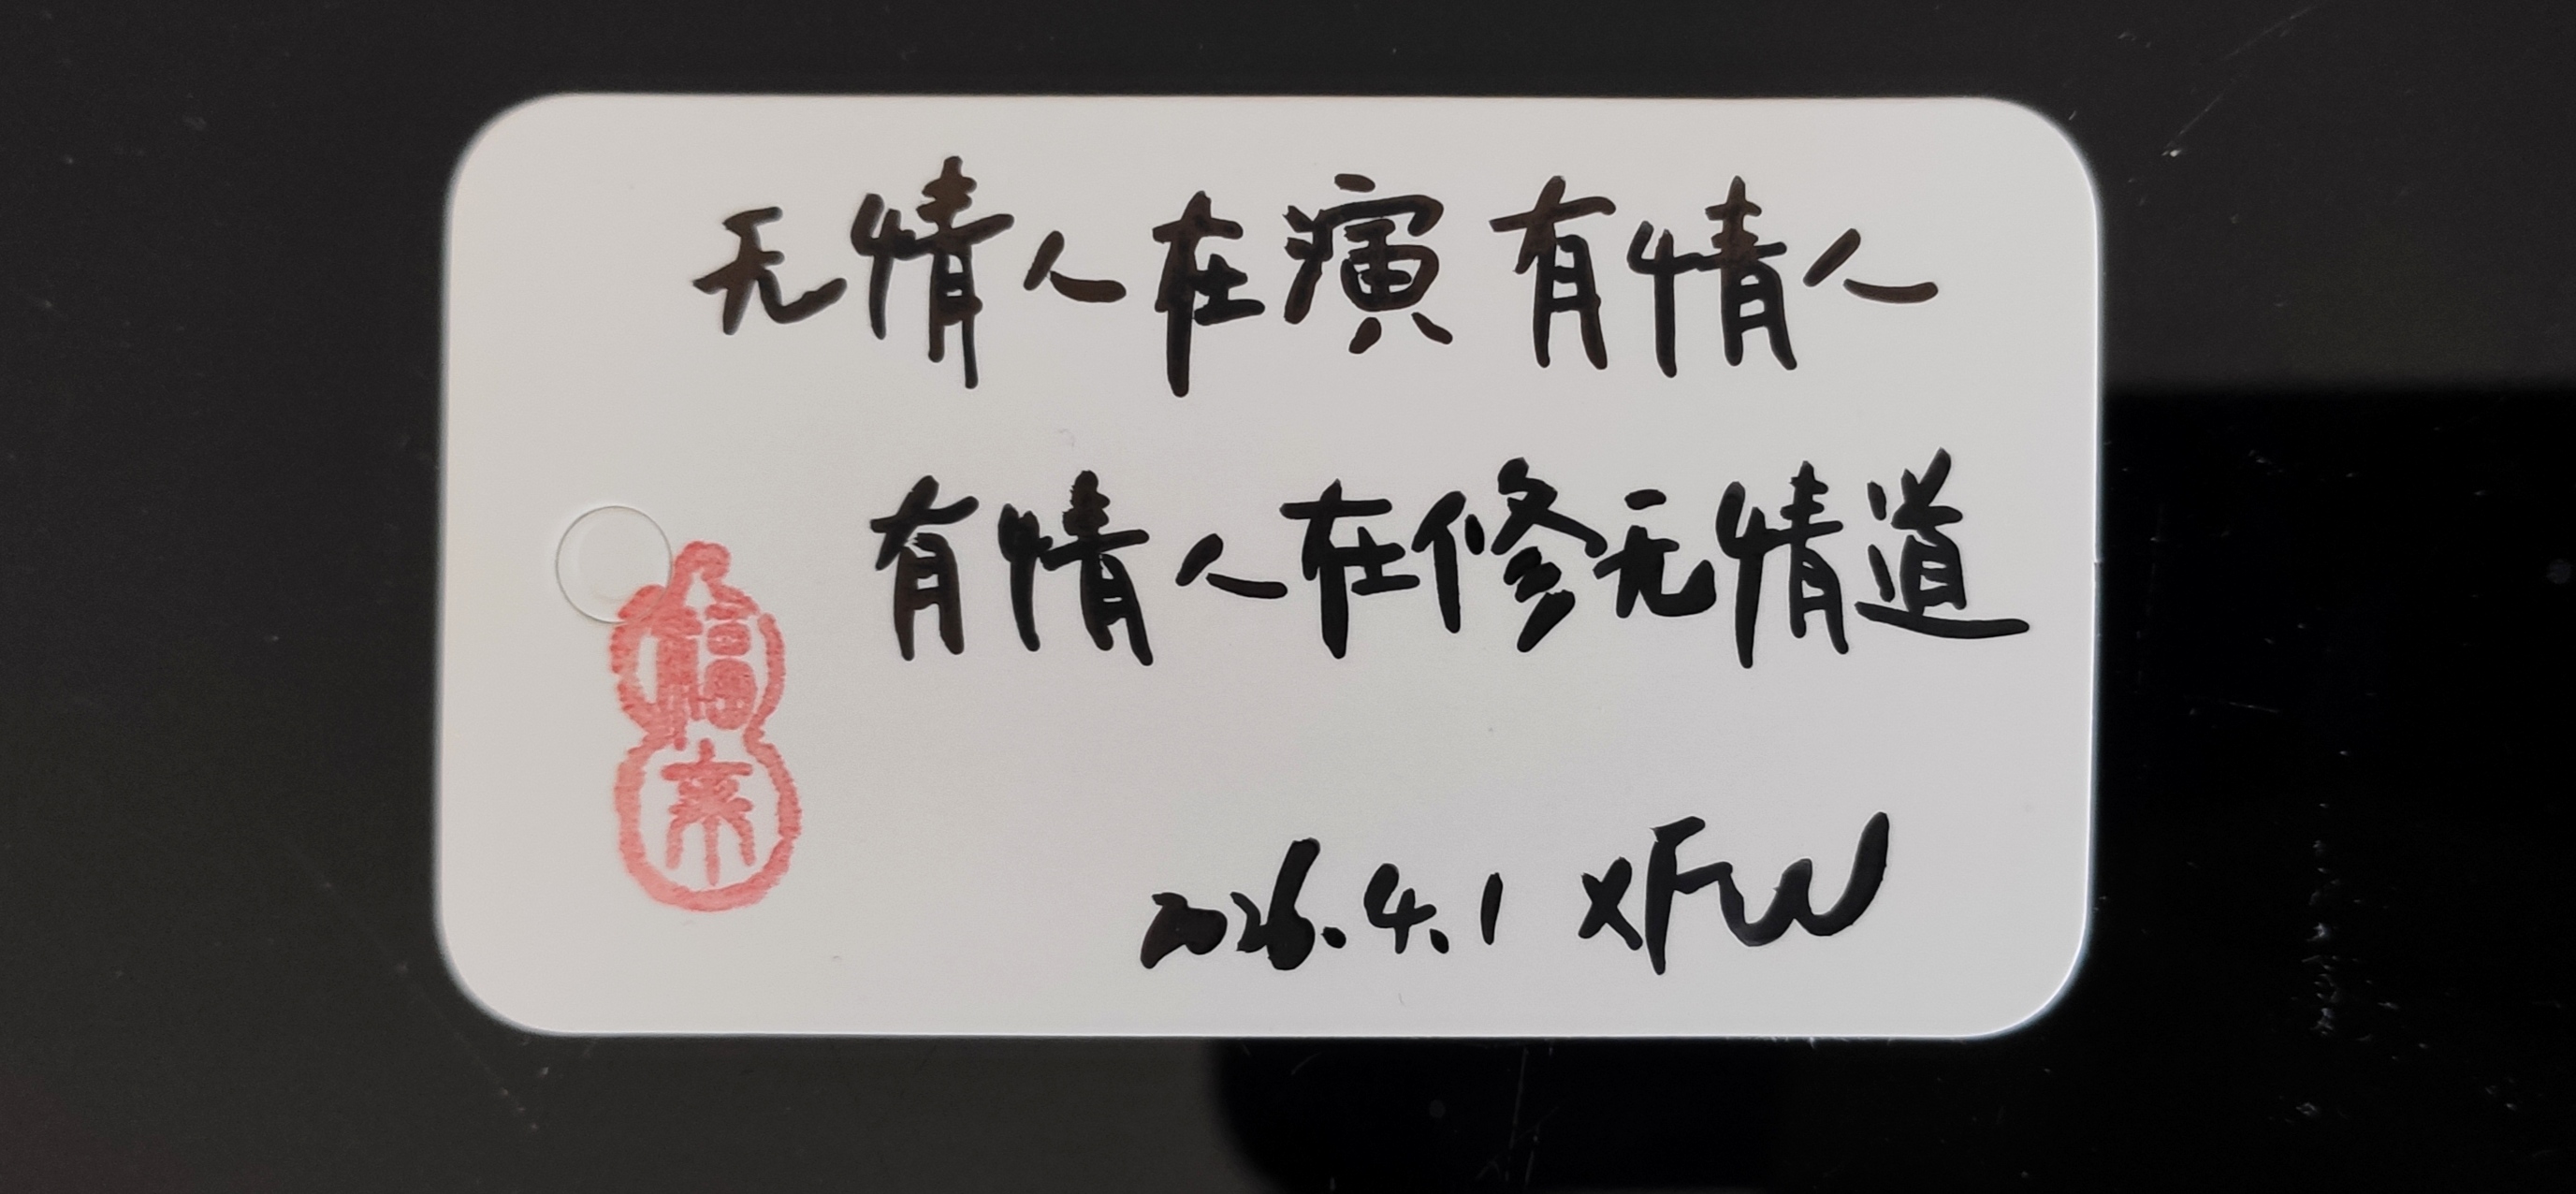 无情人在演有情人
有情人在修无情道
福来
2026.4.1 XFW